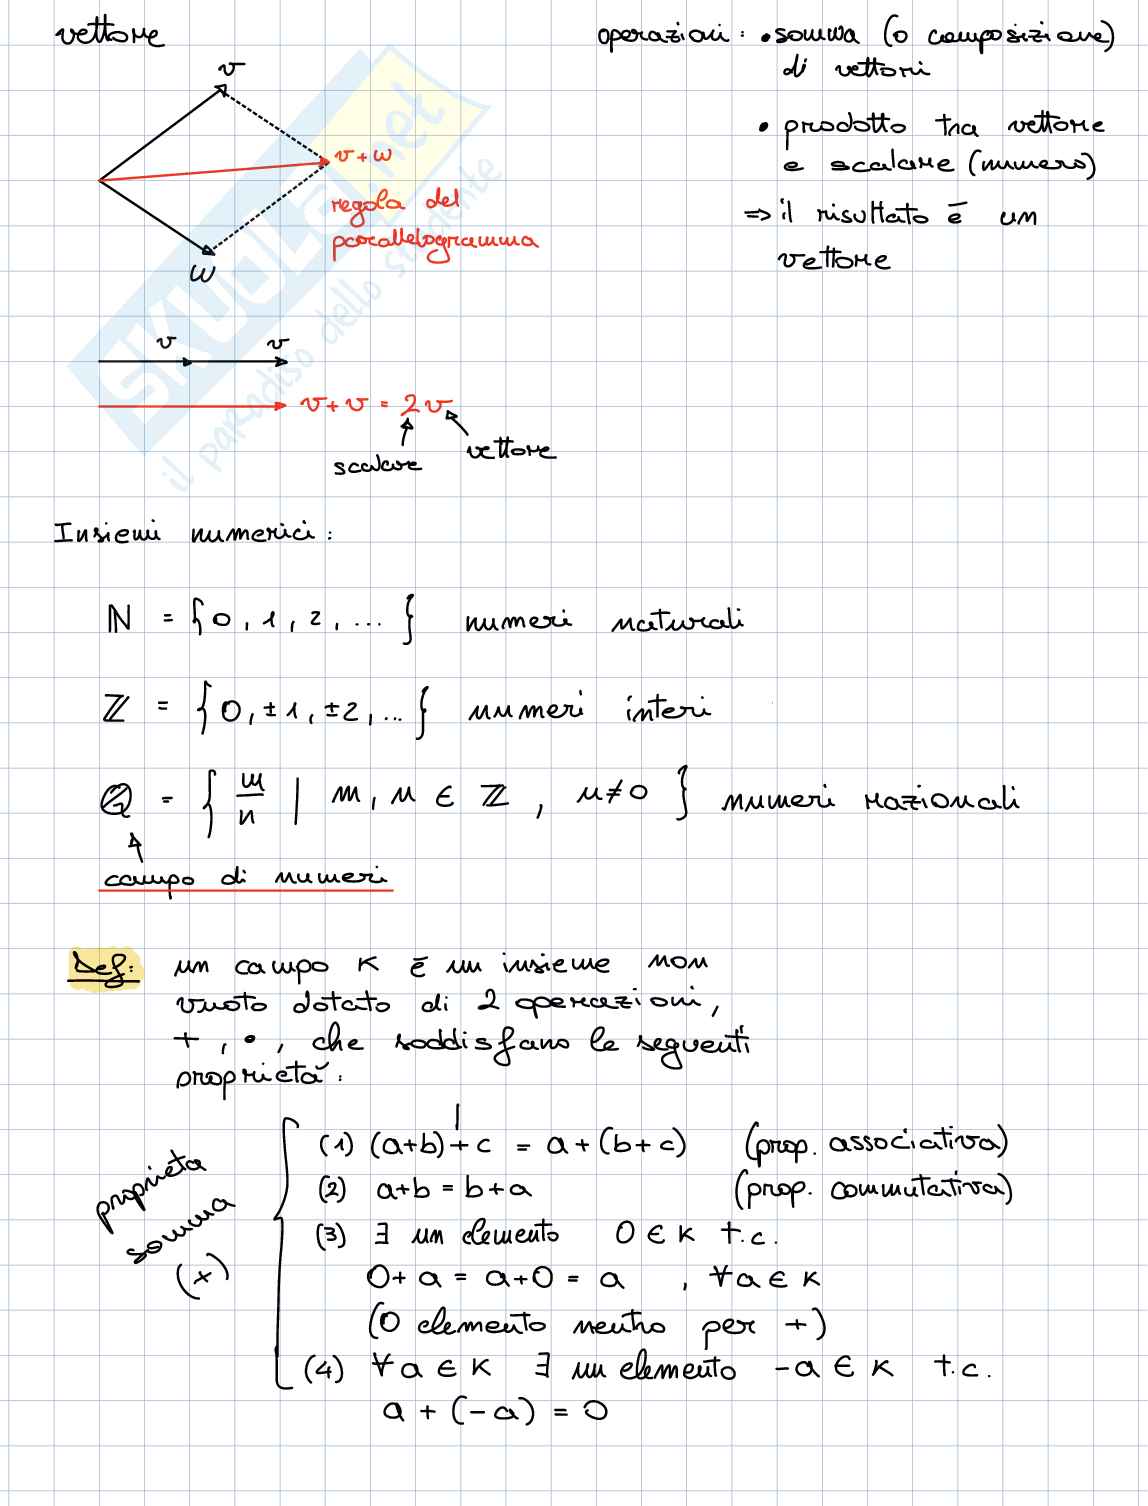 vettore
v
v+w
regola del
parallelogramma
w
operazioni: • somma (o composizione)
di vettori
• prodotto tra vettore
e scalare (numero)
⇒ il risultato è un
vettore
v v
v+v = 2v
scalare
vettore
SKUOLA.net
il paradiso dello studente
Insiemi numerici:
ℕ = {0, 1, 2, ...} numeri naturali
ℤ = {0, ±1, ±2, ...} numeri interi
ℚ = { m/n | m, n ∈ ℤ, n≠0 } numeri razionali
campo di numeri
Def: un campo K è un insieme non
vuoto dotato di 2 operazioni,
+, •, che soddisfano le seguenti
proprietà:
proprietà
somma
(+)
(1) (a+b)+c = a+(b+c) (prop. associativa)
(2) a+b = b+a (prop. commutativa)
(3) ∃ un elemento 0 ∈ K t.c.
0+a = a+0 = a , ∀a ∈ K
(0 elemento neutro per +)
(4) ∀a ∈ K ∃ un elemento -a ∈ K t.c.
a + (-a) = 0